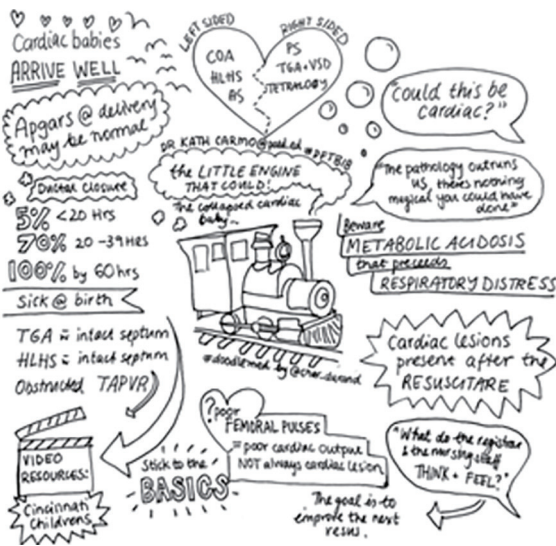 Cardiac babies
ARRIVE WELL
Apgars @ delivery
may be normal
Ductal Closure
5% <20 Hrs
70% 20-39Hrs
100% by 60hrs
Sick @ birth
TGA c̄ intact septum
HLHS c̄ intact septum
Obstructed TAPVR
VIDEO
RESOURCES:
Cincinnati
Childrens
LEFT SIDED
COA
HLHS
AS
RIGHT SIDED
PS
TGA+VSD
TETRALOGY
DR KATH CARMO
the LITTLE ENGINE
THAT COULD!
The collapsed cardiac
baby...
#doodlemed by
?poor
FEMORAL PULSES
= poor cardiac output
NOT always cardiac lesion
Stick to the
BASICS
The goal is to
improve the next
resus.
"Could this be
cardiac?"
"The pathology outruns
us, theres nothing
magical you could have
done"
Beware
METABOLIC ACIDOSIS
that preceeds
RESPIRATORY DISTRESS
Cardiac lesions
present after the
RESUSCITARE
"What do the registrar
& the nursing staff
THINK + FEEL?"